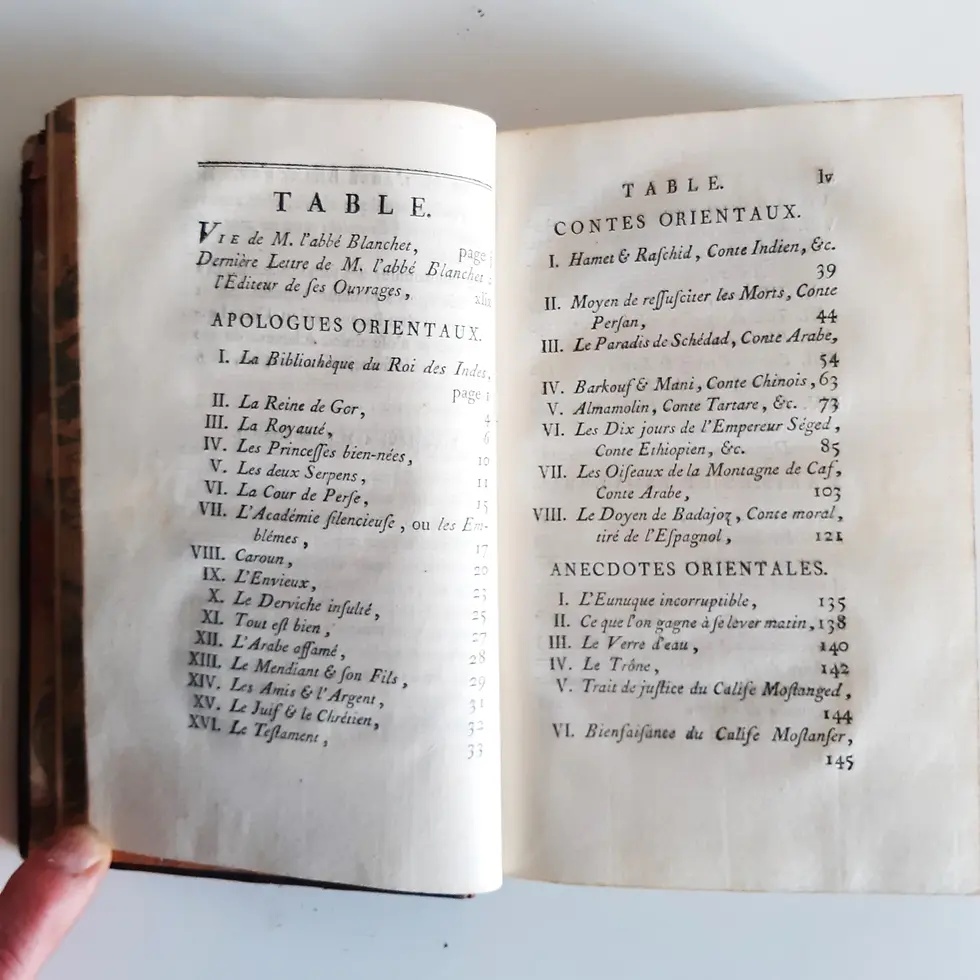 TABLE.
VIE de M. l'abbé Blanchet, page
Derniere Lettre de M. l'abbé Blanchet
l'Éditeur de ſes Ouvrages,
APOLOGUES ORIENTAUX.
I. La Bibliothèque du Roi des Indes,
page 1
II. La Reine de Gor, 4
III. La Royauté, 6
IV. Les Princeſſes bien-nées, 10
V. Les deux Serpens, 11
VI. La Cour de Perſe, 15
VII. L'Académie ſilencieuſe, ou les Em-
blémes, 17
VIII. Caroun, 20
IX. L'Envieux, 23
X. Le Derviche inſulté, 25
XI. Tout eſt bien, 27
XII. L'Arabe affamé, 28
XIII. Le Mendiant & ſon Fils, 29
XIV. Les Amis & l'Argent, 31
XV. Le Juif & le Chrétien, 32
XVI. Le Teſtament, 33
TABLE. lv
CONTES ORIENTAUX.
I. Hamet & Raſchid, Conte Indien, &c.
39
II. Moyen de reſſuſciter les Morts, Conte
Perſan, 44
III. Le Paradis de Schédad, Conte Arabe,
54
IV. Barkouf & Mani, Conte Chinois, 63
V. Almamolin, Conte Tartare, &c. 73
VI. Les Dix jours de l'Empereur Séged,
Conte Ethiopien, &c. 85
VII. Les Oiſeaux de la Montagne de Caf,
Conte Arabe, 103
VIII. Le Doyen de Badajoz, Conte moral,
tiré de l'Eſpagnol, 121
ANECDOTES ORIENTALES.
I. L'Eunuque incorruptible, 135
II. Ce que l'on gagne à ſe lever matin, 138
III. Le Verre d'eau, 140
IV. Le Trône, 142
V. Trait de juſtice du Calife Moſtanged,
144
VI. Bienfaiſance du Calife Moſtanſer,
145